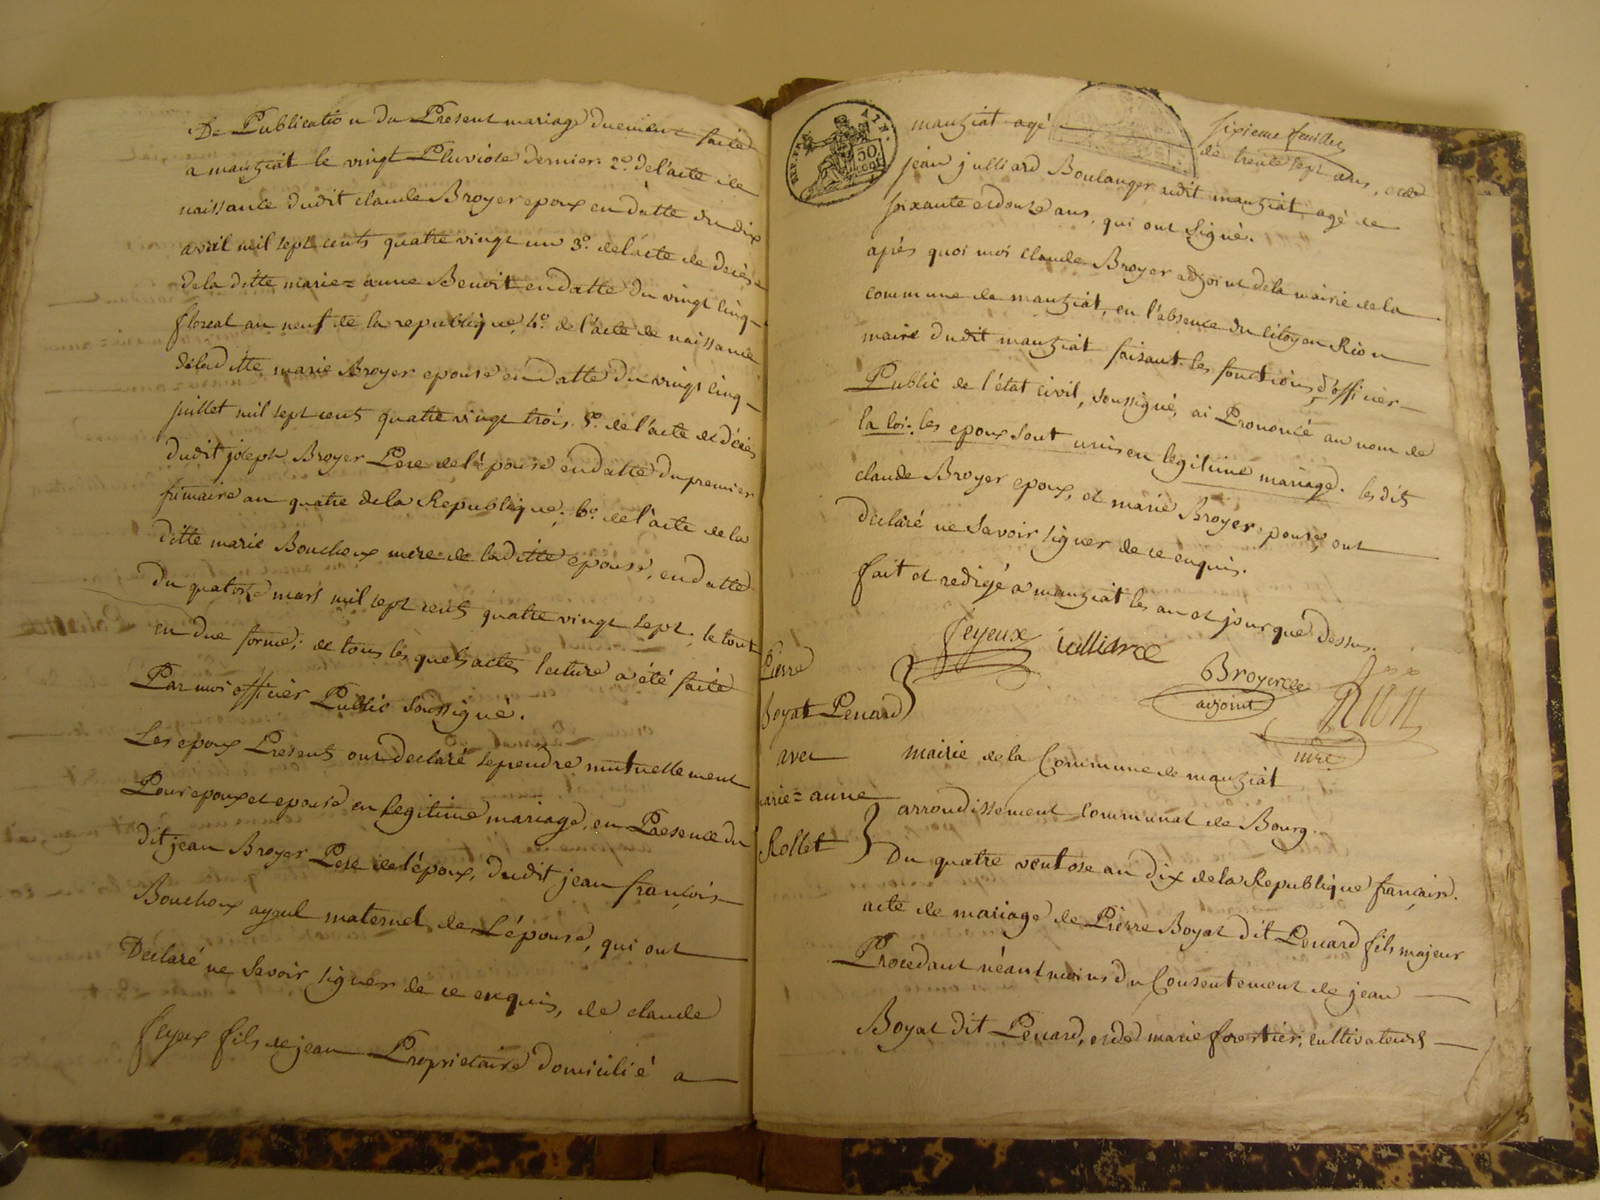 De Publication du Présent mariage duement faite
a manziat le vingt Pluviose dernier. 2.º de l'acte de
naissance dudit claude Broyer epoux en datte du dix
avril mil sept cents quatre vingt un 3.º de l'acte de decès
de la ditte marie=anne Benoit en datte du vingt cinq
floreal an neuf de la republique, 4.º de l'acte de naissance
de la ditte marie Broyer epouse en datte du vingt cinq
juillet mil sept cents quatre vingt trois. 5.º de l'acte de décès
dudit joseph Broyer Pere de l'épouse en datte du premier
frimaire an quatre de la Republique; 6.º de l'acte de la
ditte marie Boucheux mere de la ditte épouse, en datte
du quatorze mars mil sept cents quatre vingt sept. le tout
en due forme; de tous les quels actes lecture a été faite
Par moi officier Public soussigné.
Les epoux Présents ont declaré se prendre mutuellement
Pour epoux et epouse en legitime mariage, en Présence du
dit jean Broyer Pere de l'époux, dudit jean françois
Boucheux ayeul maternel de L'épouse, qui ont
Declaré ne Savoir signer de ce enquis, de claude
feyeux fils de jean Proprietaire domicilié a
sixieme feuillet
manziat agé de trente sept ans, et de
jean julliard Boulanger audit manziat agé de
soixante et douze ans, qui ont Signé.
après quoi moi claude Broyer adjoint de la mairie de la
commune de manziat, en l'absence du citoyen Rion
maire dudit manziat faisant les fonctions d'officier
Public de l'état civil, soussigné, ai Prononcé au nom de
la loi: les epoux sont unis en legitime mariage. les dits
claude Broyer epoux, et marie Broyer epouse, ont
Declaré ne Savoir signer de ce enquis.
fait et redigé a manziat les an et jour que dessus.
feyeux julliard
Broyer
adjoint
Rion
mre
Pierre
Boyat Penard
avec
marie=anne
Rollet
mairie de la Commune de manziat
arrondissement Communal de Bourg.
Du quatre ventose an dix de la Republique française.
acte de mariage de Pierre Boyat dit Penard fils majeur
Procedant néantmoins du Consentement de jean
Boyat dit Penard, et de marie forestier, cultivateurs